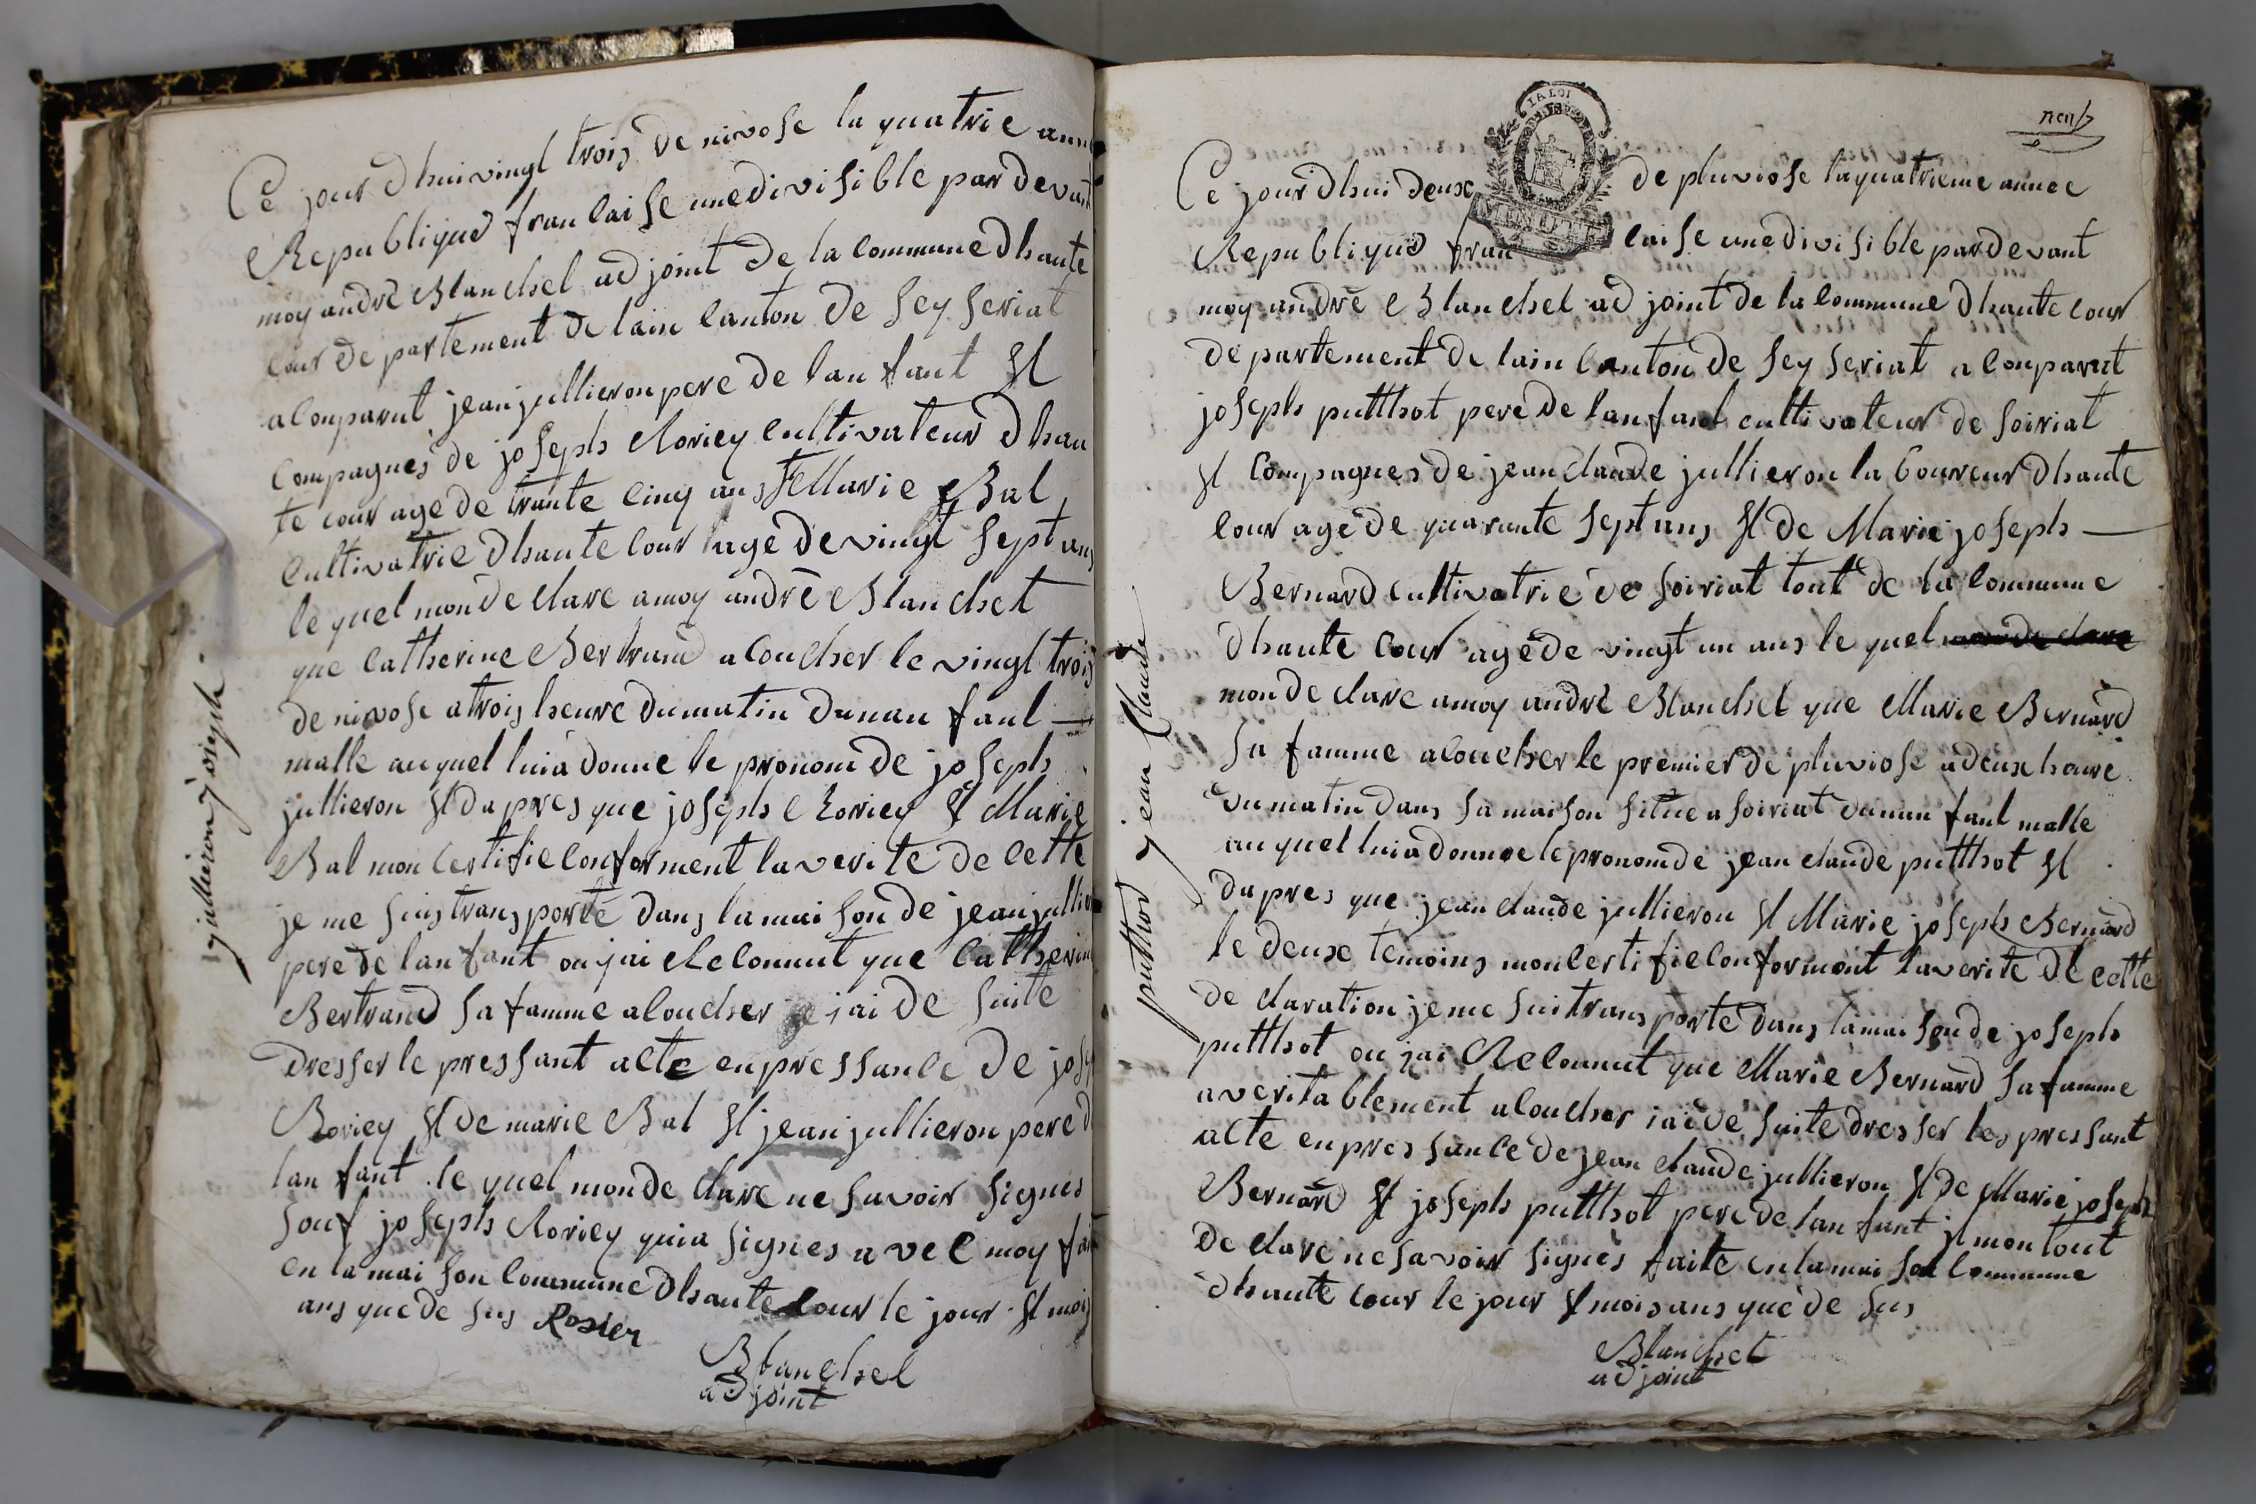 Ce jour dhui vingt trois de nivose la quatrie anné
Republique francaise unedivisible par devant
moy andré Blanchet adjoint de la commune dhaute
cour departement de lain canton de seyseriat
a conparut jean jullieron pere de lanfant et
compagnes de joseph Roriey cultivateur dhau
te cour age de trante cinq ans et Marie Bal
cultivatrie dhaute cour lage de vingt sept ans
le quel mon declare a moy andré Blanchet
que catherine Bertrand a coucher le vingt trois
de nivose a trois heure du matin dunan fant —
malle auquel luia donne le pronom de joseph
jullieron et dapres que joseph Roriey et Marie
Bal mon certifie conforment la verite de cette
je me suis transporté dans la maison de jean jullier
pere de lanfant ou jai Reconnut que catherine
Bertrand sa famme a coucher jai de suite
dresser le pressant acte en pressance de jose
Roriey et de marie Bal et jean jullieron pere d
lanfant . le quel mon declare ne savoir signes
souf joseph Roriey quia signes avec moy fai
en la maison commune dhaute cour le jour et mois
ans que de sus Rosier
Blanchet
adjoint
jullieron joseph
neuf
LA LOI
Ce jour dhui deuxe de pluviose la quatrieme annee
Republique francaise unedivisible pardevant
moy andré Blanchet adjoint de la commune dhaute cour
departement de lain canton de seyseriat a conparut
joseph putthot pere de lanfant cultivateur de soiriat
et compagnes de jean claude jullieron laboureur dhaute
cour agé de quarante sept ans et de Marie joseph —
Bernard cultivatrie de soiriat tout de la commune
dhaute cour agé de vingt un ans le quel mon de clare
mon declare a moy andré Blanchet que Marie Bernard
sa famme a coucher le premier de pluviose a deux houre
du matin dans sa maison sitüe a soiriat dunan fant malle
auquel luia donnee le pronom de jean claude putthot et
dapres que jean claude jullieron et Marie joseph Bernard
le deuxe temoins mon certifie conformont la verite de cette
declaration je me suitransporte dans la maison de joseph
putthot ou jai Reconnut que Marie Bernard sa famme
a veritablement a coucher jai de suite dresser les pressant
acte en pressance de jean claude jullieron et de Marie joseph
Bernard et joseph putthot pere de lanfant jl mon tout
declare ne savoir signés faite en la maison commune
dhaute cour le jour et mois ans que de sus
Blanchet
adjoint
putthod jean Claude